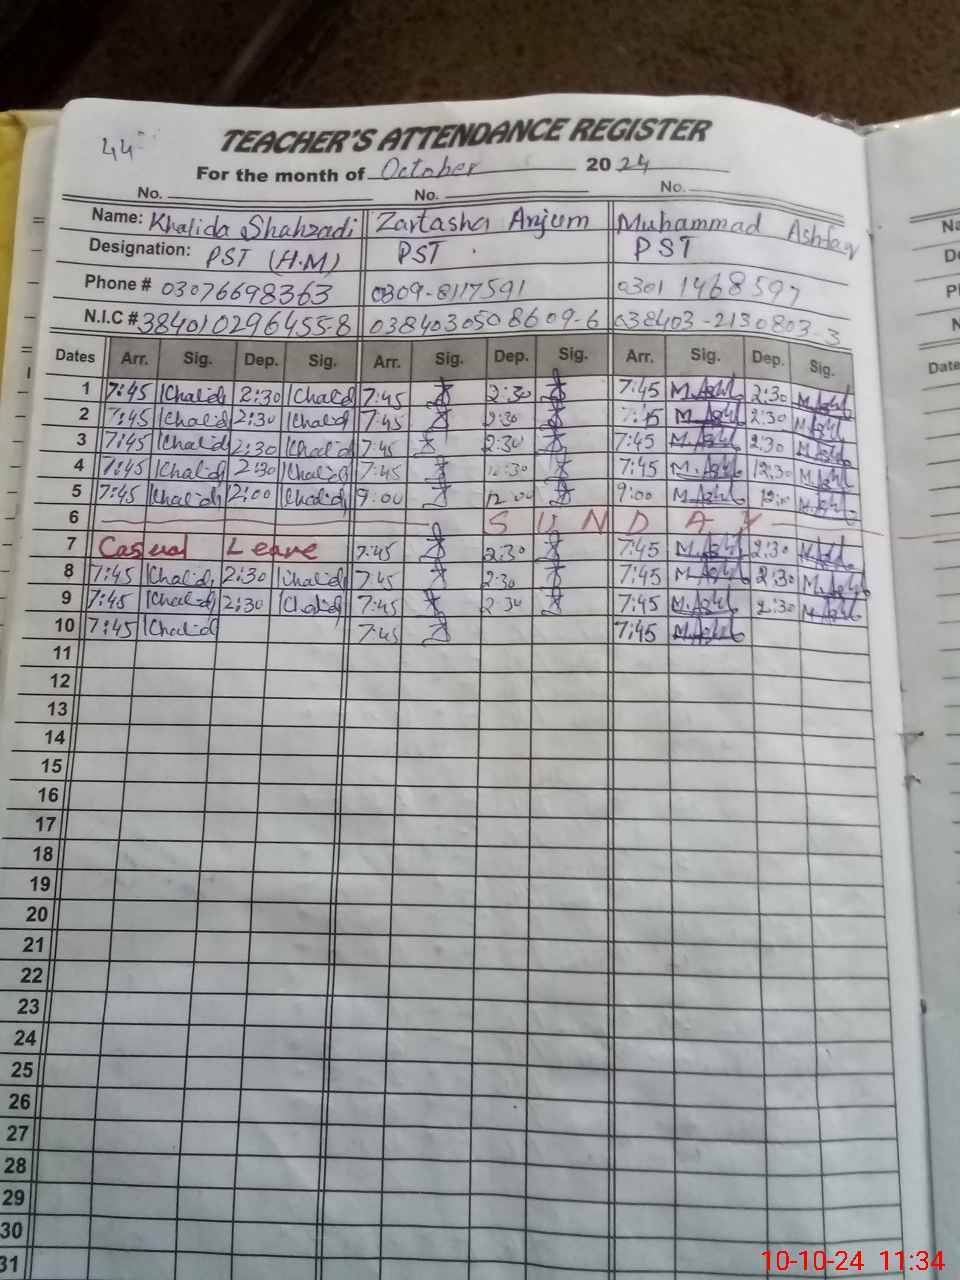 44
TEACHER'S ATTENDANCE REGISTER
For the month of October 2024
No. No. No.
Name: Khalida Shahzadi Zartasha Anjum Muhammad Ashfaq
Designation: PST (H.M) PST PST
Phone # 03076698363 0309-8117591 0301 1468597
N.I.C # 3840102964558-8 0384030508609-6 038403-2130803-3
Dates Arr. Sig. Dep. Sig. Arr. Sig. Dep. Sig. Arr. Sig. Dep. Sig.
1 7:45 Khalid 2:30 Khalid 7:45 2:30 7:45 M.Ashf 2:30 M.Ashf
2 7:45 Khalid 2:30 Khalid 7:45 2:30 7:45 M.Ashf 2:30 M.Ashf
3 7:45 Khalid 2:30 Khalid 7:45 2:30 7:45 M.Ashf 2:30 M.Ashf
4 7:45 Khalid 2:30 Khalid 7:45 12:30 7:45 M.Ashf 12:30 M.Ashf
5 7:45 Khalid 2:00 Khalid 9:00 12:00 9:00 M.Ashf M.Ashf
6 SUNDAY
7 Casual Leave 7:45 2:30 7:45 M.Ashf 2:30 M.Ashf
8 7:45 Khalid 2:30 Khalid 7:45 2:30 7:45 M.Ashf 2:30 M.Ashf
9 7:45 Khalid 2:30 Khalid 7:45 2:30 7:45 M.Ashf 2:30 M.Ashf
10 7:45 Khalid 7:45 7:45 M.Ashf
11
12
13
14
15
16
17
18
19
20
21
22
23
24
25
26
27
28
29
30
31
10-10-24 11:34